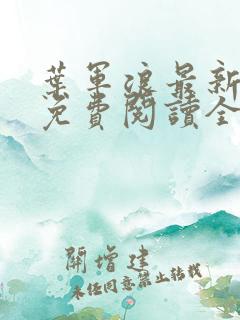 葉軍浪最新
免費閱讀全
開增建
未經同意禁止轉載